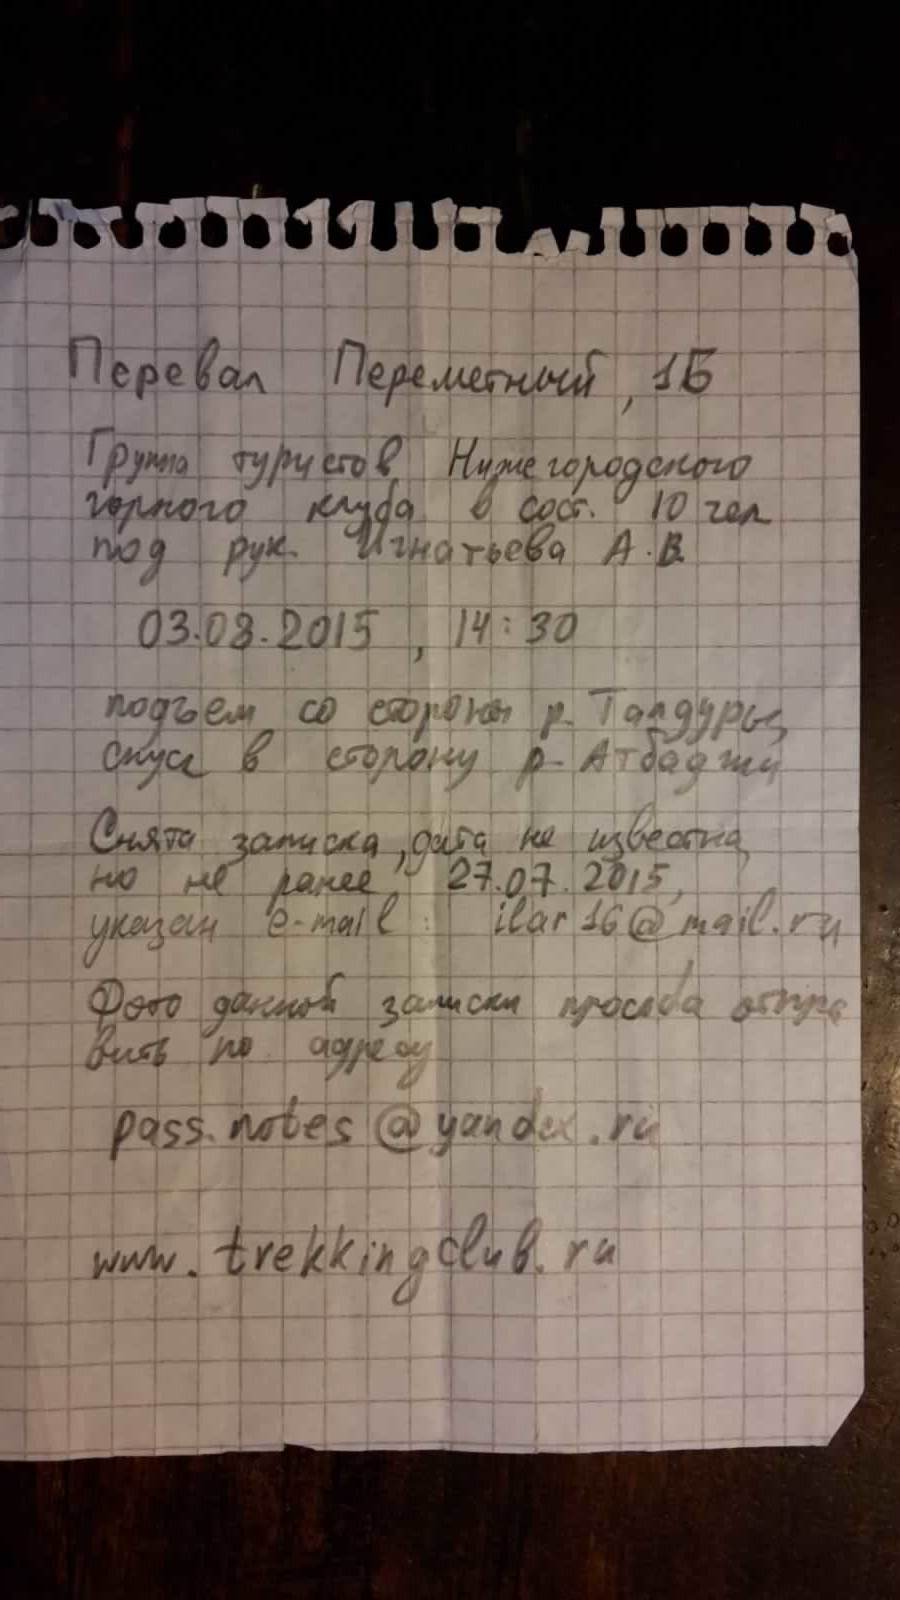 Перевал Переметный, 1Б
Группа туристов Нижегородского
горного клуба в сост. 10 чел
под рук. Игнатьева А.В.
03.08.2015, 14:30
подъем со стороны р. Талдуры,
спуск в сторону р. Атбаджи
Снята записка, дата не известна,
но не ранее 27.07.2015,
указан e-mail: ilar16@mail.ru
Фото данной записки просьба отпра
вить по адресу
pass.notes@yandex.ru
www.trekkingclub.ru